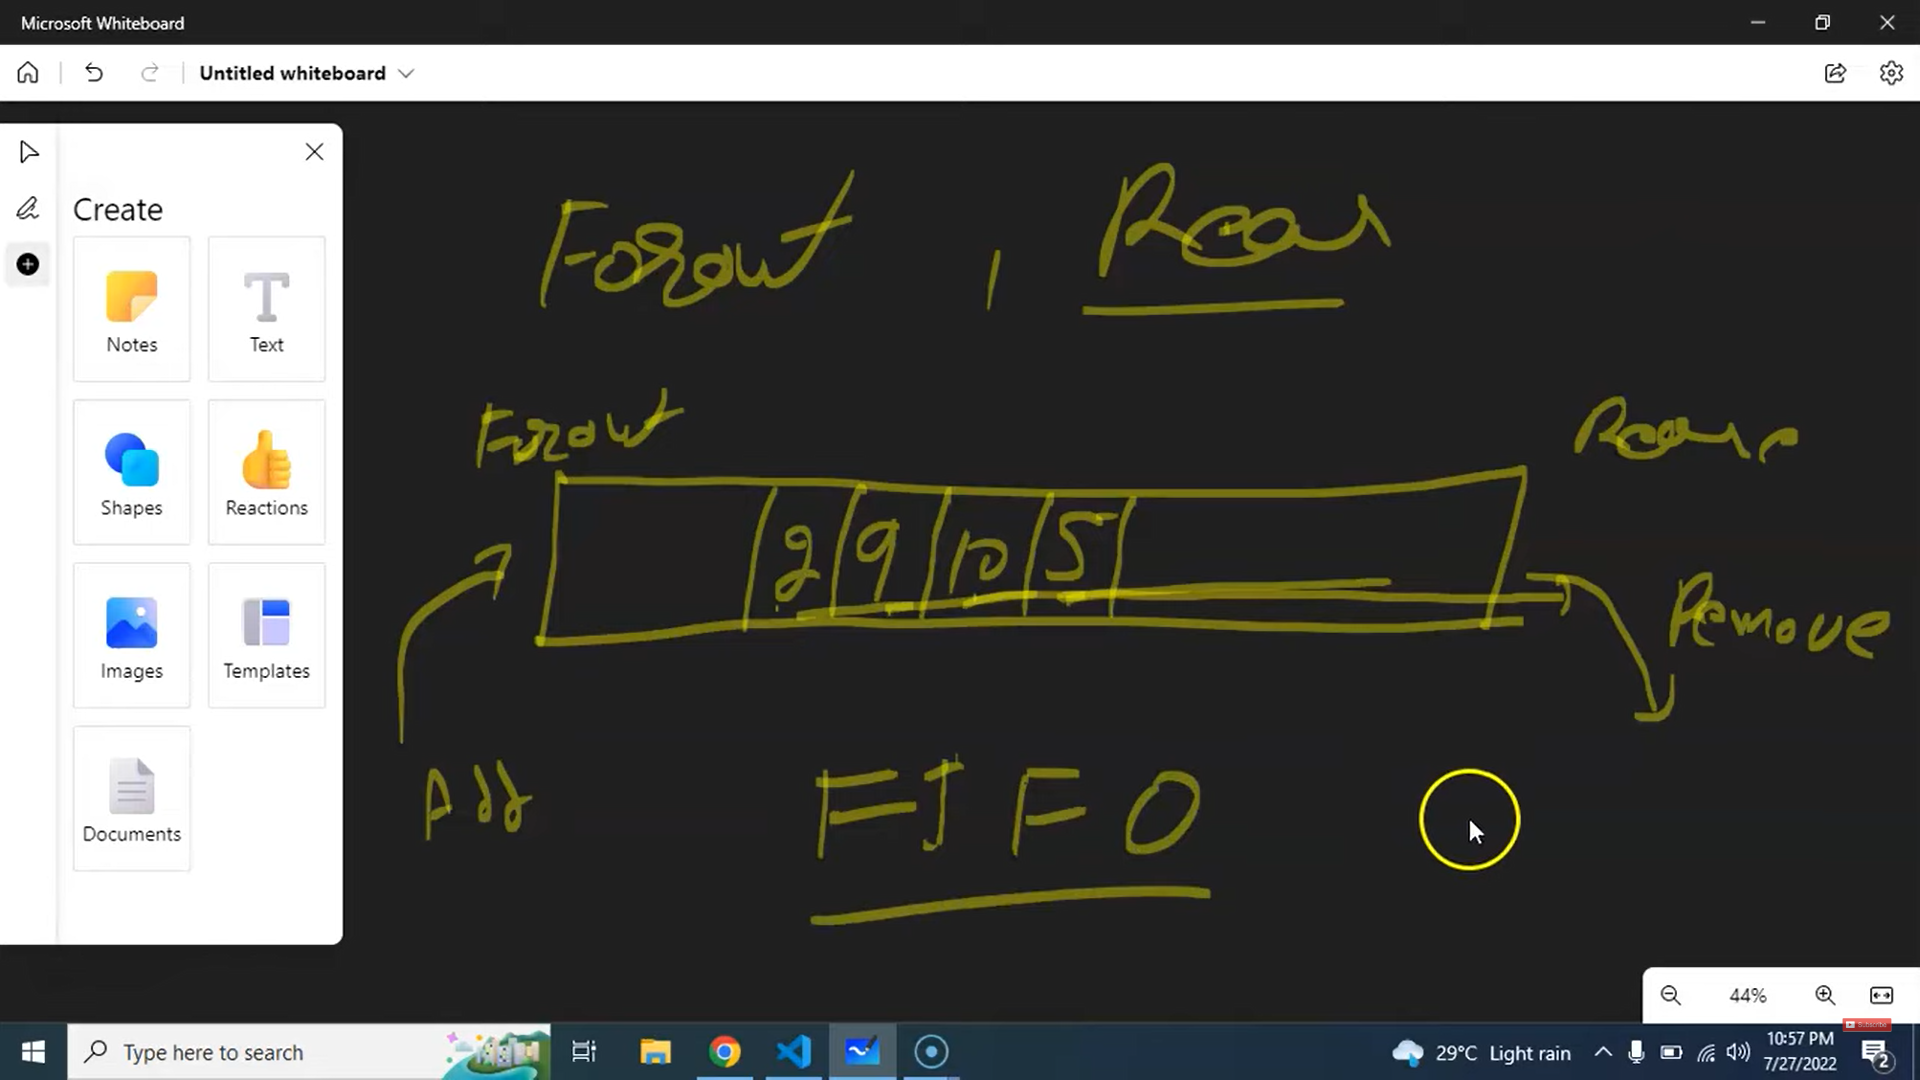 Microsoft Whiteboard
Untitled whiteboard
Create
Notes
Text
Shapes
Reactions
Images
Templates
Documents
Front , Rear
Front
Rear
2 9 10 5
Remove
Add
FIFO
44%
Subscribe
Type here to search
29°C Light rain
10:57 PM
7/27/2022
2